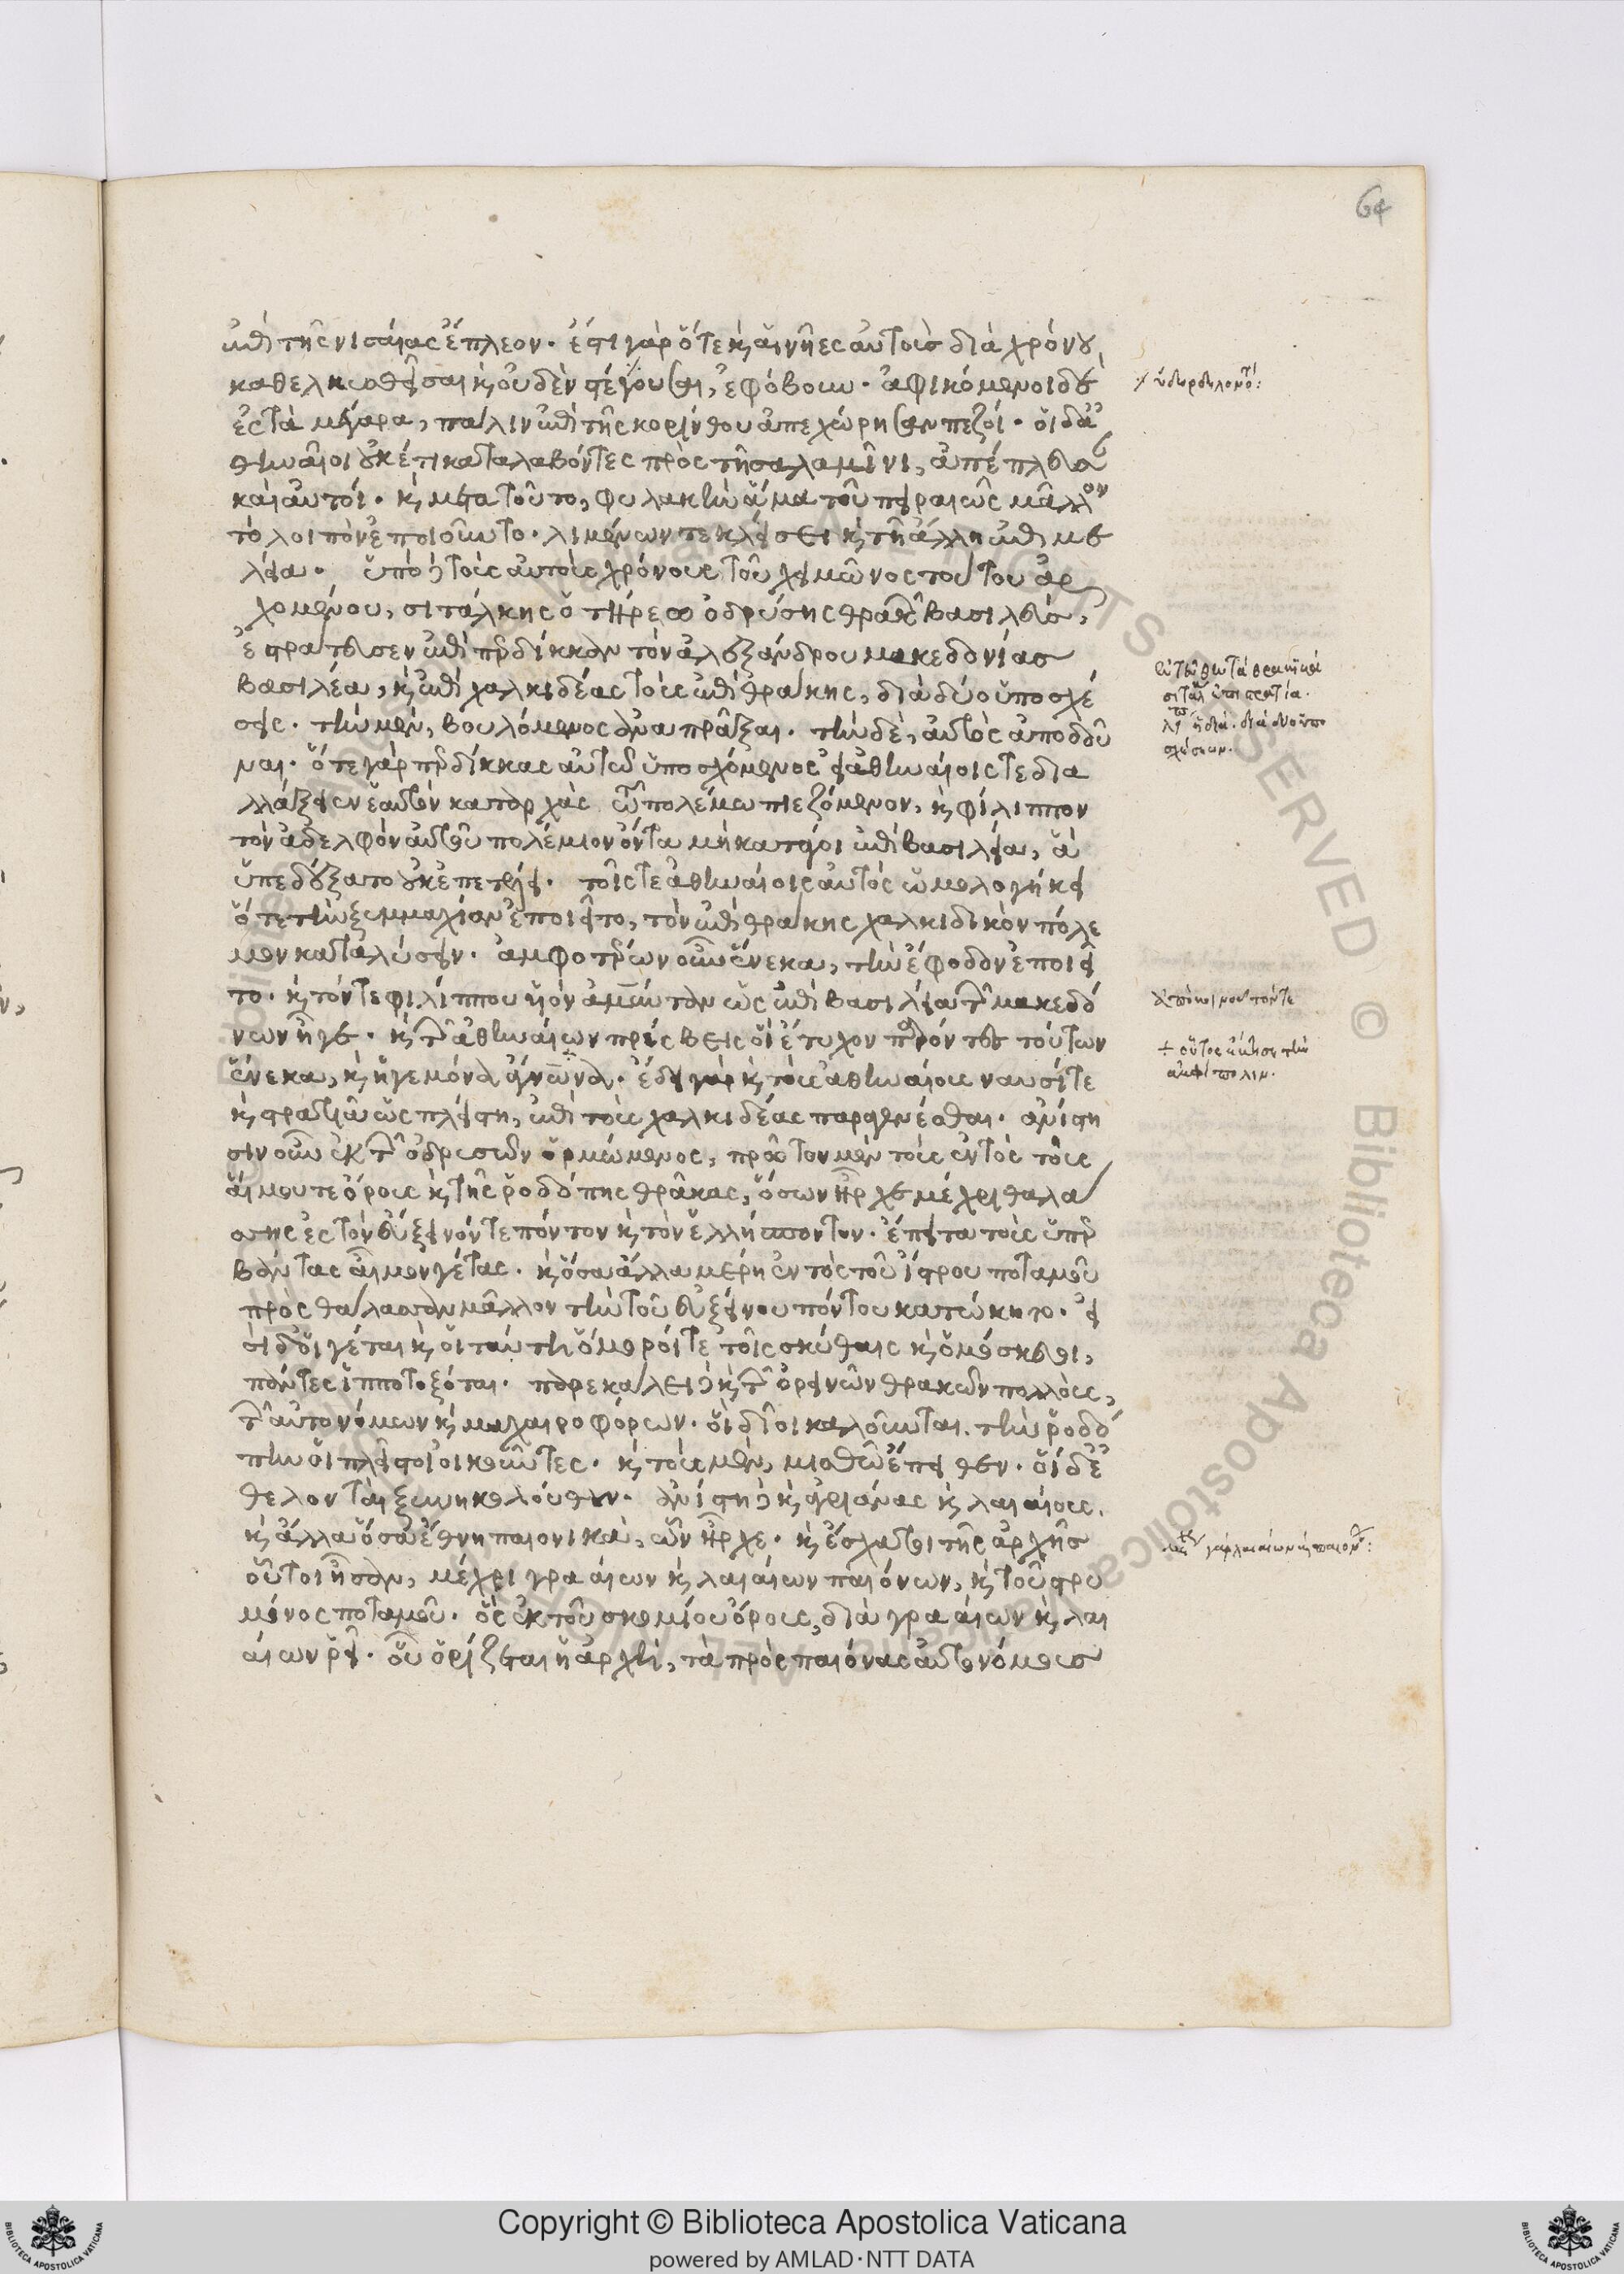 64
ἐπὶ τῆς νισαίας ἔπλεον· ἔστι γὰρ ὅτε κ αἱ νῆες αὐτοὺς διὰ χρόνου
καθελκυσθεῖσαι κ οὐδὲν στέγουσαι, ἐφόβουν· ἀφικόμενοι δὲ
ἐς τὰ μέγαρα, πάλιν ἐπὶ τῆς κορίνθου ἀπεχώρησαν πεζοί· οἱ δ' ἀ
θηναῖοι οὐκέτι καταλαβόντες πρὸς τῆ σαλαμῖνι, ἀπέπλευσαν
καὶ αὐτοί· κ μετὰ τοῦτο, φυλακὴν ἅμα τοῦ πειραιῶς μᾶλλον
τὸ λοιπὸν ἐποιοῦντο· λιμένων τε κλήσει κ τῆ ἄλλη ἐπιμε
λεία· ὑπὸ δὲ τοὺς αὐτοὺς χρόνους τοῦ χειμῶνος τούτου ἀρ
χομένου, σιτάλκης ὁ τήρεω ὀδρύσης θρακῶν βασιλεὺς,
ἐστράτευσεν ἐπὶ περδίκκαν τὸν ἀλεξάνδρου μακεδονίας
βασιλέα, κ ἐπὶ χαλκιδέας τοὺς ἐπὶ θράκης, διὰ δύο ὑποσχέ
σεις· τὴν μὲν, βουλόμενος ἀναπρᾶξαι· τὴν δὲ, αὐτὸς ἀποδοῦ
ναι· ὅ τε γὰρ περδίκκας αὐτῶ ὑποσχόμενος εἰ ἀθηναίοις τε δια
λλάξειεν ἑαυτὸν κατ' ἀρχὰς τῶ πολέμω πιεζόμενον, κ φίλιππον
τὸν ἀδελφὸν αὐτοῦ πολέμιον ὄντα μὴ καταγάγοι ἐπὶ βασιλεία, ἃ
ὑπεδέξατο οὐκ ἐπετέλει· τοῖς τε ἀθηναίοις αὐτὸς ὡμολογήκει
ὅτε τὴν ξυμμαχίαν ἐποιεῖτο, τὸν ἐπὶ θράκης χαλκιδικὸν πόλε
μον καταλύσειν· ἀμφοτέρων οὖν ἕνεκα, τὴν ἔφοδον ἐποιεῖ
το· κ τόν τε φιλίππου υἱὸν ἀμύνταν ὡς ἐπὶ βασιλεία τῶν μακεδό
νων ἦγε· κ τῶν ἀθηναίων πρέσβεις οἳ ἔτυχον παρόντες τούτων
ἕνεκα, κ ἡγεμόνα ἅγνωνα· ἔδει γὰρ κ τοὺς ἀθηναίους ναυσί τε
κ στρατιᾶ ὡς πλείστη, ἐπὶ τοὺς χαλκιδέας παραγενέσθαι· ἀνίστη
σιν οὖν ἐκ τῶν ὀδρυσῶν ὁρμώμενος, πρῶτον μὲν τοὺς ἐντὸς τοῦ
αἵμου τε ὄρους κ τῆς ῥοδόπης θρᾶκας, ὅσων ἦρχε μέχρι θαλά
σσης ἐς τὸν εὔξεινόν τε πόντον κ τὸν ἑλλήσποντον· ἔπειτα τοὺς ὑπερ
βάντας αἷμον γέτας· κ ὅσα ἄλλα μέρη ἐντὸς τοῦ ἴστρου ποταμοῦ
πρὸς θάλασσαν μᾶλλον τὴν τοῦ εὐξείνου πόντου κατώκητο· εἰ
σὶ δ' οἱ γέται κ οἱ ταύτη ὅμοροί τε τοῖς σκύθαις κ ὁμόσκευοι,
πάντες ἱπποτοξόται· παρεκάλει δὲ κ τῶν ὀρεινῶν θρακῶν πολλοὺς,
τῶν αὐτονόμων κ μαχαιροφόρων· οἳ δῖοι καλοῦνται. τὴν ῥοδό
πην οἱ πλεῖστοι οἰκοῦντες· κ τοὺς μὲν, μισθῶ ἔπειθεν· οἱ δ' ἐ
θελονταὶ ξυνηκολούθουν· ἀνίστη δὲ κ ἀγριᾶνας κ λαιαίους.
κ ἄλλα ὅσα ἔθνη παιονικὰ, ὧν ἦρχε· κ ἔσχατοι τῆς ἀρχῆς
οὗτοι ἦσαν, μέχρι γρααίων κ λαιαίων παιόνων, κ τοῦ στρυ
μόνος ποταμοῦ· ὃς ἐκ τοῦ σκομίου ὄρους, διὰ γρααίων κ λαι
αίων ῥεῖ· οὗ ὁρίζεται ἡ ἀρχὴ, τὰ πρὸς παιόνας αὐτονόμους
ἐντεῦθεν τὰ θρακικά
διὰ δύο ὑπο
σχέσεων.
οὗτος ᾤκησε τὴν
ἀμφίπολιν.
Copyright © Biblioteca Apostolica Vaticana
powered by AMLAD·NTT DATA